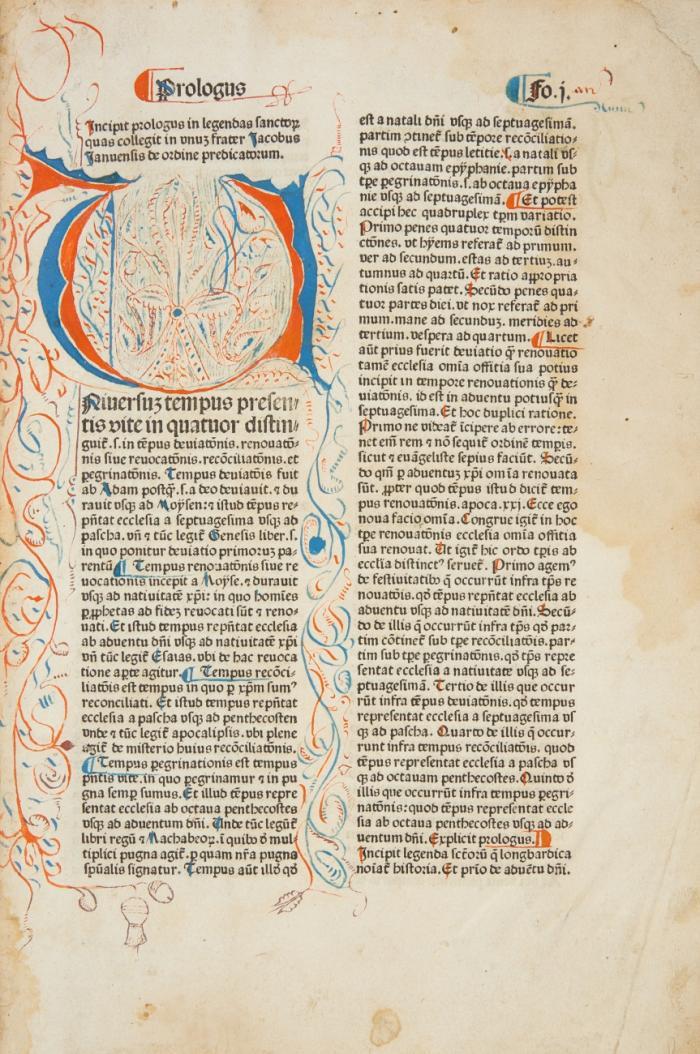 Prologus
Fo. j.
Incipit prologus in legendas sanctoꝝ
quas collegit in vnuꝫ frater Jacobus
Januensis de ordine predicatorum.
Niuersuꝫ tempus presen⸗
tis vite in quatuor distin⸗
guit᷑.s.in tēpus deuiatōnis.renouatō⸗
nis siue reuocatōnis.recōciliatōnis.et
peregrinatōnis. Tempus deuiatōis fuit
ab Adam postꝙ̄.s.a deo deuiauit.⁊ du
rauit vsqꝫ ad Moysen:⁊ istud tēpus re⸗
pn̄tat ecclesia a septuagesima vsqꝫ ad
pascha. vn̄ ⁊ tūc legit᷑ Genesis liber.s.
in quo ponitur deuiatio primoruꝫ pa⸗
rentū Tempus renouatōnis siue re
uocationis incepit a Moyse.⁊ durauit
vsqꝫ ad natiuitatē xp̄i: in quo homīes
ꝑ ꝓphetas ad fidēꝫ reuocati sūt ⁊ reno⸗
uati. Et istud tempus repn̄tat ecclesia
ab aduentu dn̄i vsqꝫ ad natiuitatē xp̄i
vn̄ tūc legit᷑ Esaias. vbi de hac reuoca
tione aꝑte agitur. Tempus recōci⸗
liatōis est tempus in quo ꝑ xp̄m sumꝰ
reconciliati. Et istud tempus repn̄tat
ecclesia a pascha vsqꝫ ad penthecosten
vnde ⁊ tūc legit᷑ apocalipsis. vbi plene
agit᷑ de misterio huius recōciliatōnis.
Tempus peregrinationis est tempus
pn̄tis vite.in quo peregrinamur ⁊ in pu
gna semꝑ sumus. Et illud tēpus repre
sentat ecclesia ab octaua penthecostes
vsqꝫ ad aduentum dn̄i. Unde tūc legūt᷑
libri regū ⁊ Machabeoꝝ. ī quibꝰ d̄ mul
tiplici pugna agit᷑. ꝑ quam nr̄a pugna
spūalis signatur. Tempus aūt illd̄ qd̄
est a natali dn̄i vsqꝫ ad septuagesimā.
partim ꝯtinet᷑ sub tēpore recōciliatio⸗
nis quod est tēpus letitie:.s.a natali vs⸗
qꝫ ad octauam epyphanie. partim sub
tp̄e pegrinatōnis.s.ab octaua epypha
nie vsqꝫ ad septuagesimā. Et potest
accipi hec quadruplex tp̄m variatio.
Primo penes quatuor temporū distin
ctōnes. vt hyems referat᷑ ad primum.
ver ad secundum.estas ad tertiuꝫ.au⸗
tumnus ad quartū. Et ratio appropria
tionis satis patet. Secūdo penes qua⸗
tuor partes diei. vt nox referat᷑ ad pri
mum.mane ad secunduꝫ. meridies ad
tertium. vespera ad quartum. Licet
aūt prius fuerit deuiatio ꝙ̄ renouatio
tamē ecclesia omīa offitia sua potius
incipit in tempore renouationis ꝙ̄ de⸗
uiatōnis. id est in aduentu potiusꝙ̄ in
septuagesima. Et hoc duplici ratione.
Primo ne videat᷑ īcipere ab errore:te⸗
net em̄ rem ⁊ nō sequit᷑ ordinē temꝑis.
sicut ⁊ euāgeliste sepius faciūt. Secū⸗
do qm̄ ꝑ aduentuꝫ xp̄i om̄ia renouata
sūt. ꝓpter quod tēpus istud dicit᷑ tem⸗
pus renouatōnis. apoca.xxj. Ecce ego
noua facio om̄ia. Congrue igit᷑ in hoc
tp̄e renouatōnis ecclesia om̄ia offitia
sua renouat. Ut igit᷑ hic ordo tp̄is ab
ecclīa distinctꝰ seruet᷑. Primo agemꝰ
de festiuitatibꝰ q̄ occurrūt infra tp̄s re
nouatōis.qd̄ tēpus repn̄tat ecclesia ab
aduentu vsqꝫ ad natiuitatē dn̄i. Secū⸗
do de illis q̄ occurrūt infra tp̄s qd̄ par⸗
tim cōtinet᷑ sub tp̄e recōciliatōis. par⸗
tim sub tp̄e ꝑegrinatōnis.qd̄ tp̄s repre
sentat ecclesia a natiuitate dn̄i vsqꝫ ad se⸗
ptuagesimā. Tertio de illis que occur
rūt infra tēpus deuiatōnis.qd̄ tempus
representat ecclesia a septuagesima vs
qꝫ ad pascha. Quarto de illis q̄ occur⸗
runt infra tempus recōciliatōis. quod
tēpus representat ecclesia a pascha vs
qꝫ ad octauam penthecostes. Quinto d̄
illis que occurrūt infra tempus ꝑegri⸗
natōnis:quod tēpus representat eccle
sia ab octaua penthecostes vsqꝫ ad ad⸗
uentum dn̄i. Explicit prologus.
Incipit legenda sc̄toꝝ q̄ longbardica
noīat᷑ historia. Et prīo de aduētu dn̄i.